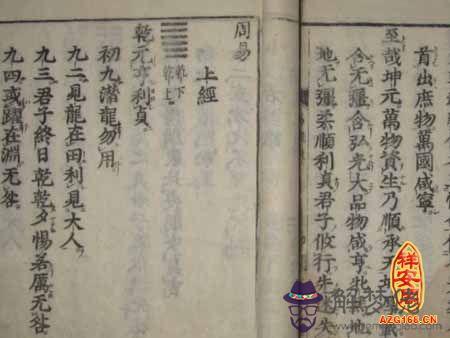 首出庶物萬國咸寧
至哉坤元萬物資生乃順承天
合无疆含弘光大品物咸亨牝馬地
地无疆柔順利貞君子攸行先
周易
上經
乾下
乾上
乾元亨利貞
初九潛龍勿用
九二見龍在田利見大人
九三君子終日乾乾夕惕若厲无咎
九四或躍在淵无咎
祥安閣
AZG168.CN